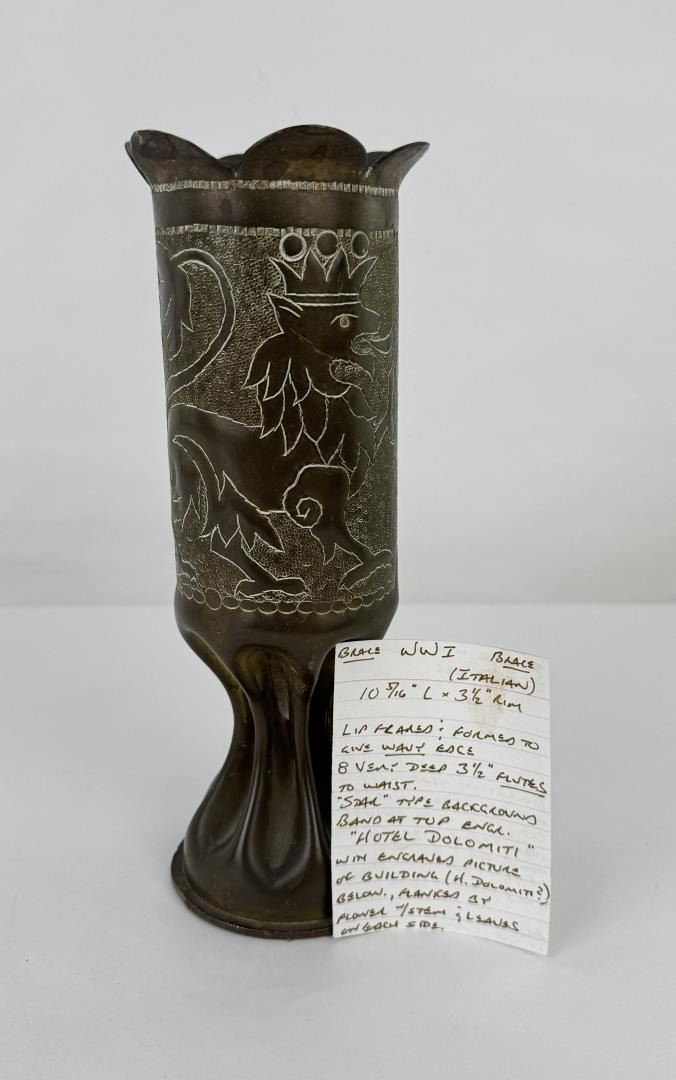 BRACE WWI BRACE
(ITALIAN)
10 5/16" L x 3 1/2" RIM
LIP FLARED & FORMED TO
GIVE WAVY EDGE
8 VERY DEEP 3 1/2" FLUTES
TO WAIST.
"STAR" TYPE BACKGROUND
BAND AT TOP ENGR.
"HOTEL DOLOMITI"
WITH ENGRAVED PICTURE
OF BUILDING (H. DOLOMITI?)
BELOW, FLANKED BY
FLOWER W/STEM & LEAVES
ON EACH SIDE.